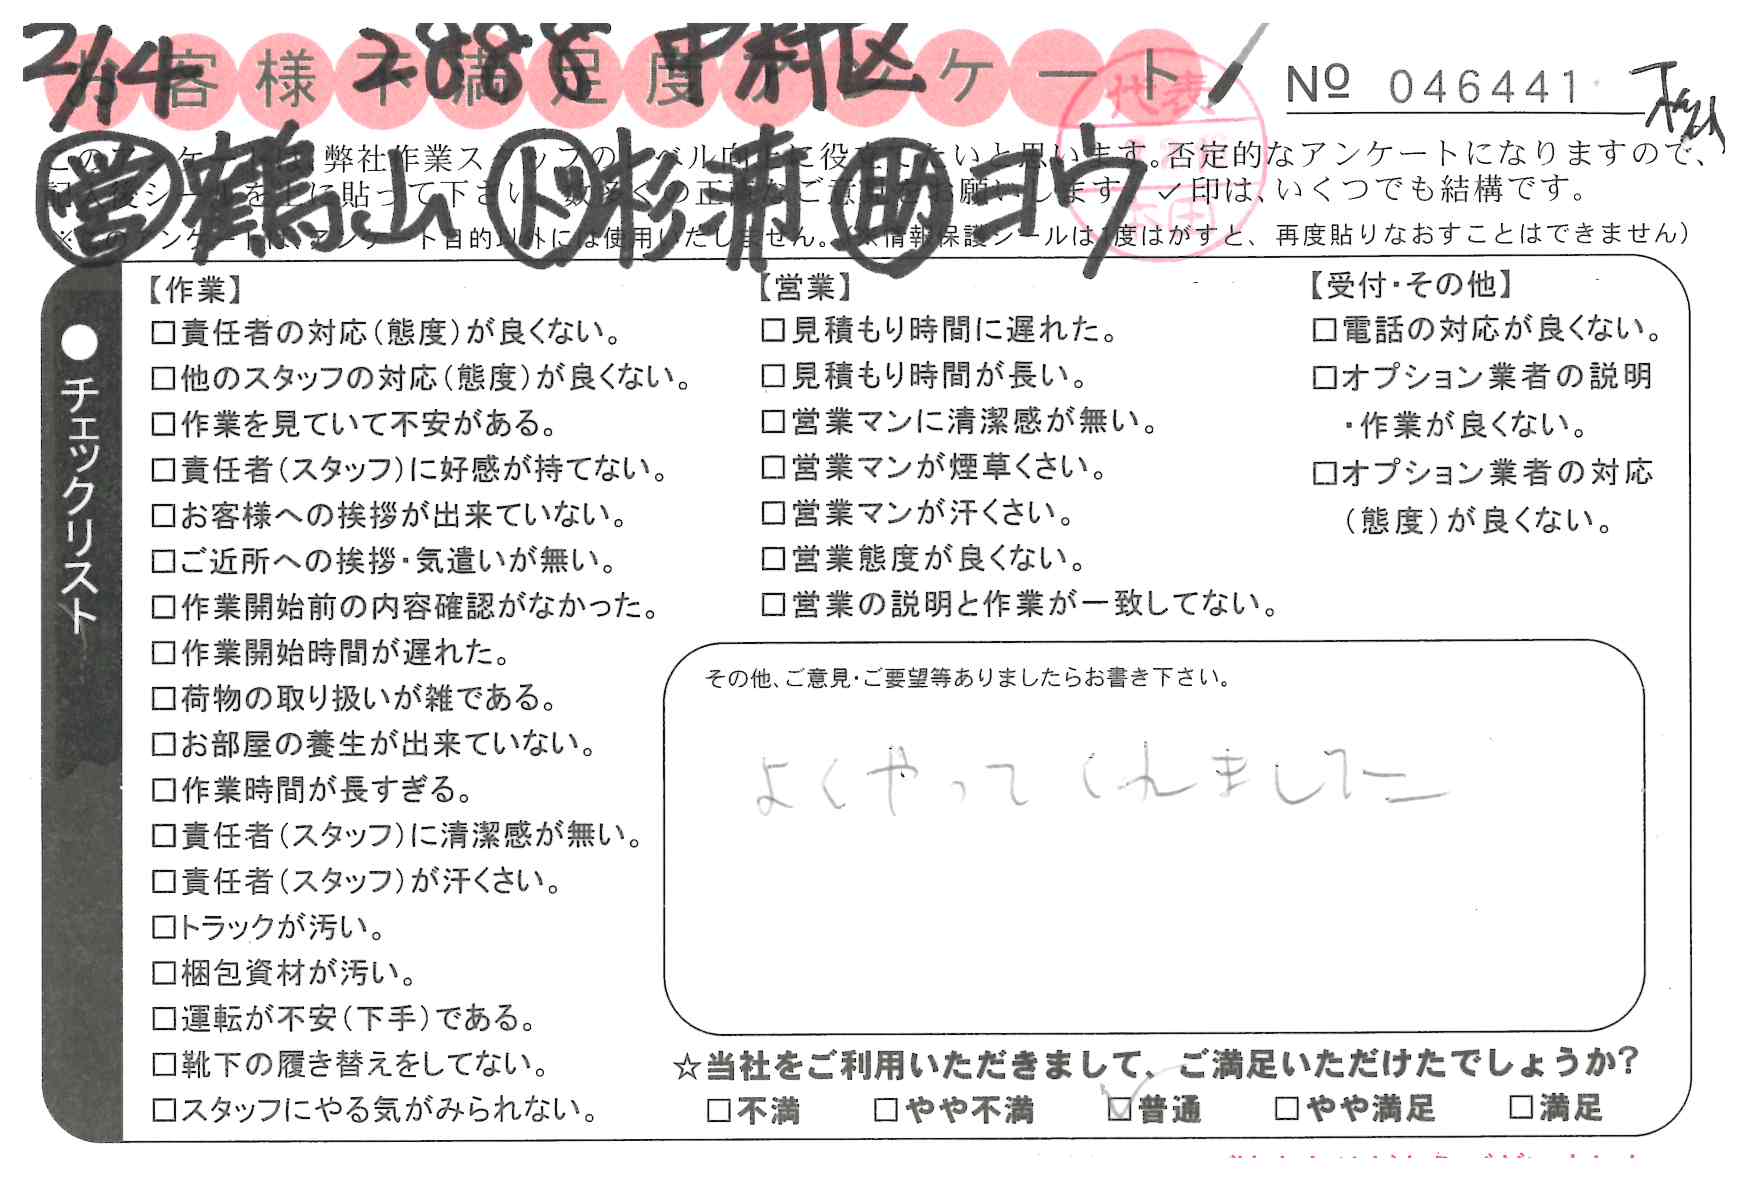 2/14 2888 中村区
お客様不満足度アンケート
№ 046441
㊡鶴山 ㋣杉浦 助ヨウ
このアンケートは、弊社作業スタッフのレベル向上に役立てたいと思います。否定的なアンケートになりますので、
記入後シールを上に貼って下さい。数多くの正直なご意見をお願いします。✓印は、いくつでも結構です。
※このアンケートは、アンケート目的以外には使用いたしません。(※情報保護シールは1度はがすと、再度貼りなおすことはできません)
代表
本田
●チェックリスト
【作業】
□責任者の対応(態度)が良くない。
□他のスタッフの対応(態度)が良くない。
□作業を見ていて不安がある。
□責任者(スタッフ)に好感が持てない。
□お客様への挨拶が出来ていない。
□ご近所への挨拶・気遣いが無い。
□作業開始前の内容確認がなかった。
□作業開始時間が遅れた。
□荷物の取り扱いが雑である。
□お部屋の養生が出来ていない。
□作業時間が長すぎる。
□責任者(スタッフ)に清潔感が無い。
□責任者(スタッフ)が汗くさい。
□トラックが汚い。
□梱包資材が汚い。
□運転が不安(下手)である。
□靴下の履き替えをしてない。
□スタッフにやる気がみられない。
【営業】
□見積もり時間に遅れた。
□見積もり時間が長い。
□営業マンに清潔感が無い。
□営業マンが煙草くさい。
□営業マンが汗くさい。
□営業態度が良くない。
□営業の説明と作業が一致してない。
【受付・その他】
□電話の対応が良くない。
□オプション業者の説明
・作業が良くない。
□オプション業者の対応
(態度)が良くない。
その他、ご意見・ご要望等ありましたらお書き下さい。
よくやってくれました
☆当社をご利用いただきまして、ご満足いただけたでしょうか?
□不満 □やや不満 ☑普通 □やや満足 □満足